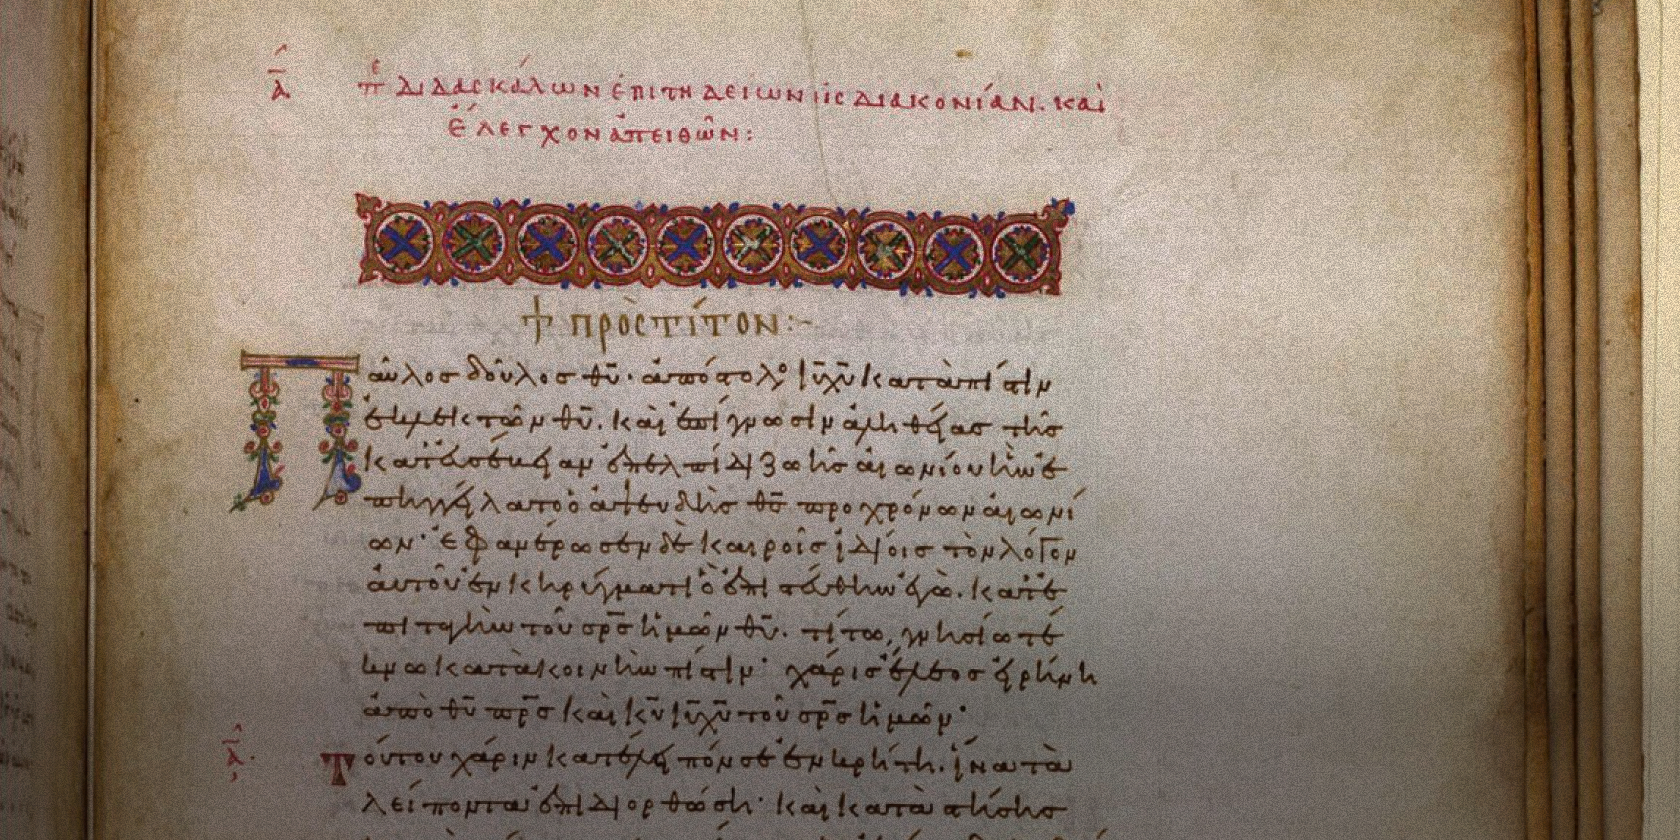 Α Πε διδασκάλων ἐπιτηδείων εἰς διακονίαν. καὶ
ἔλεγχον ἀπειθῶν:
† πρὸς τίτον:~
Παῦλος δοῦλος θῡ· ἀπόστολος ῑῡ χῡ κατὰ πίστιν
ἐκλεκτῶν θῡ. καὶ ἐπίγνωσιν ἀληθείας τῆς
κατ' εὐσέβειαν ἐπ' ἐλπίδι ζωῆς αἰωνίου ἣν ἐ
πηγγείλατο ὁ ἀψευδὴς θ̄ς πρὸ χρόνων αἰωνί
ων· ἐφανέρωσεν δὲ καιροῖς ἰδίοις τὸν λόγον
αὐτοῦ ἐν κηρύγματι ὃ ἐπιστεύθην ἐγὼ. κατ' ἐ
πιταγὴν τοῦ σ̄ρ̄ς ἡμῶν θῡ. τίτω γνησίω τέ
κνω κατὰ κοινὴν πίστιν· χάρις ἔλεος εἰρήνη
ἀπὸ θῡ π̄ρ̄ς καὶ κ̄ῡ ῑῡ χῡ τοῦ σ̄ρ̄ς ἡμῶν·
Α Τούτου χάριν κατέλιπόν σε ἐν κρήτη. ἵνα τὰ
λείποντα ἐπιδιορθώση· καὶ καταστήσης